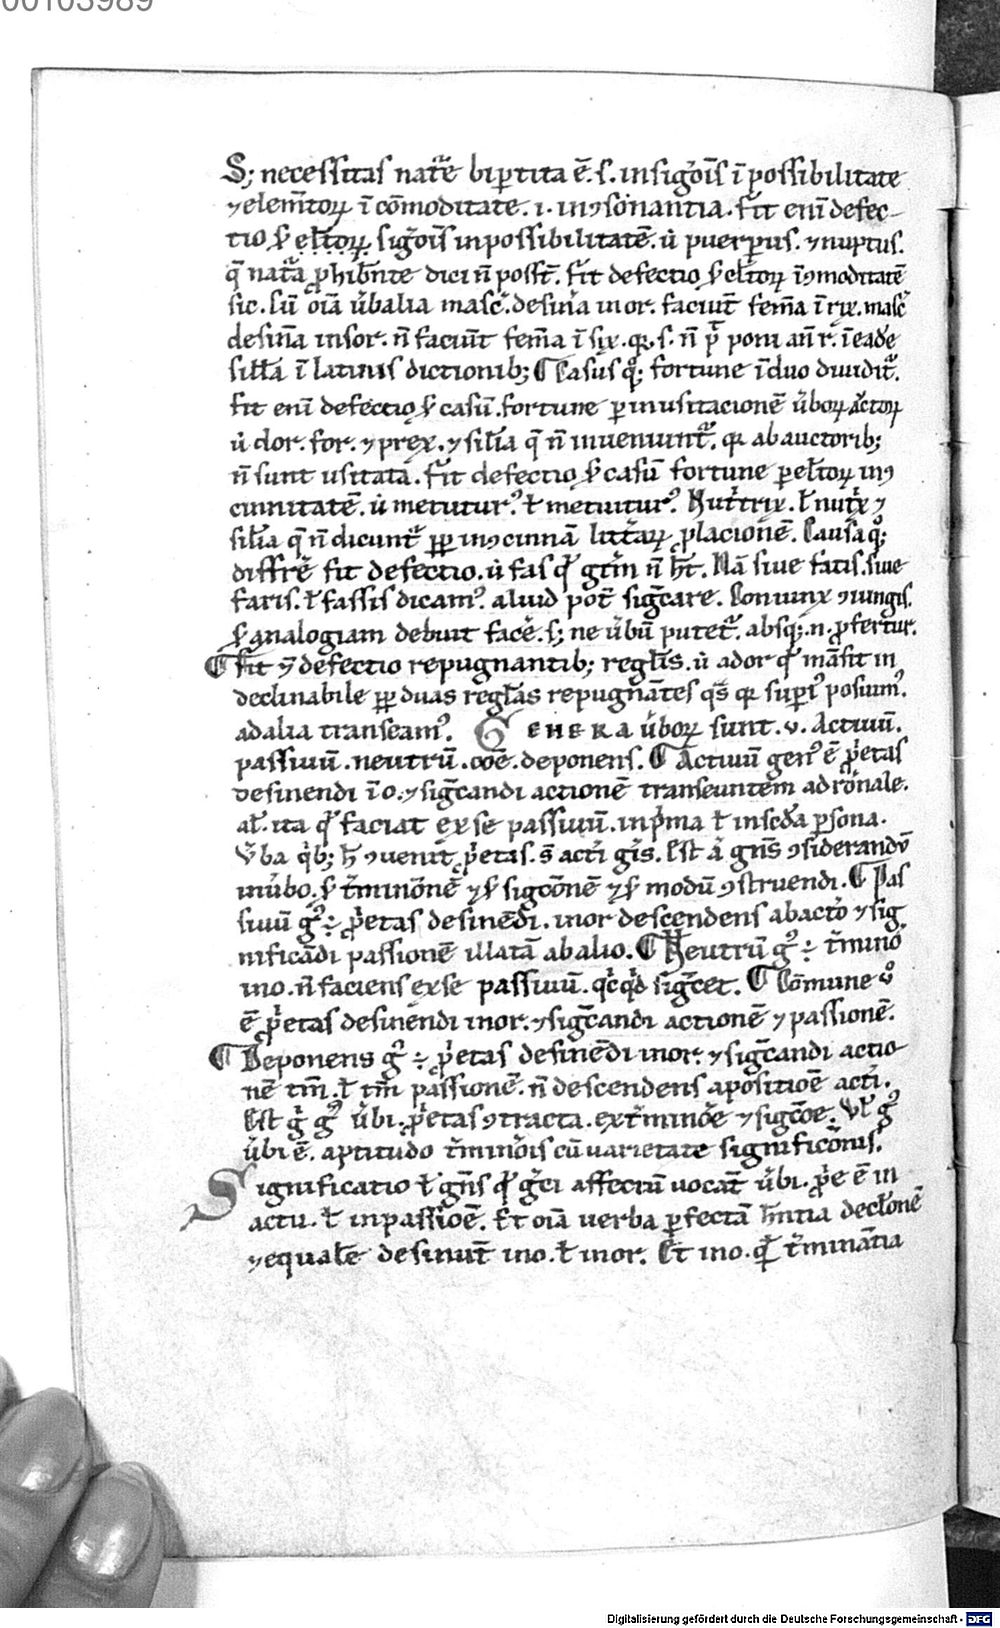 00103989
S; necessitas nat᷑e bip̲tita ē. s. in sig̅ōis ī possibilitate
⁊ elem̅toꝝ ī cōmoditate. i. inꝯsonantia. fit enī defec-
tio ẜ el̅toꝝ. sig̅ōis inpossibilitatē. u̇ puerp̲us. ⁊ nuptus.
q̄ nat᷑a ꝓhibn̅te dici n̄ poss̅t. fit defectio ẜ el̅toꝝ īꝯmoditatē
sic. Cū oīa u̇balia masc̄. desinn̅a in or. faciūt femīa ī rix. masc̄
desinn̅a in sor. n̄ faciūt femīa ī six. qꝛ. s. n̄ p̄t poni an̄ r. ī eade
sill̅a ī latinis dictionib; ¶ Casus qͦ; fortune ī duo diuidit᷑.
fit enī defectio ẜ casū. fortune p̲ inusitacionē u̇boꝝ a̅ctoꝝ
u̇ dor. for. ⁊ prex. ⁊ sil̅ia q̄ n̄ inueniunt᷑. qꝛ ab auctorib;
n̄ sunt usitata. fit defectio ẜ casū fortune p̲ el̅toꝝ inꝯ
cinnitatē. u̇ metutur᷒. ł metuitur᷒. Nut̅trix. ł nut̅x ⁊
sil̅ia q̄ n̄ dicunt᷑ ꝓp̲ inꝯcinnā litt̅aꝝ ꝓlacionē. Causa qͦ;
diffr̅e fit defectio. u̇ fas qͩ gt̅m n̄ h̅t. Nā siue fatis. siue
faris. ł fassis dicam᷒. aliud pot̄ sig̅care. Coniunx ꝯiungis.
ẜ analogiam debuit face̅. s; ne u̇bū putet᷑. absq;. n. ꝓfertur.
¶ fit ⁊ defectio repugnantib; regl̅is. u̇ ador qͩ māsit in
declinabile ꝓp̲ duas regl̅as repugnātes qͣs qꝛ sup̲i᷒ posuim᷒.
ad alia transeam᷒. GENERA u̇boꝝ sunt. v. Actiuū.
passiuū. neutrū. cōe. deponens. ¶ Actiuū gen᷒ ē ꝓp̅etas
desinendi ī o. ⁊ sig̅candi actionē transeuntem ad rōnale.
al̅. ita qͩ faciat ex se passiuū. in p̅ma ł in sec̅da p̲sona.
V̇ba qͥb; h̅ ꝯuenit ꝓp̅etas. s̄ acti g̅is. Est ā gn̅s ꝯsiderandū
in u̇bo. ẜ t̅minōnē ⁊ ẜ sigcōnē ⁊ ẜ modū ꝯstruendi. ¶ Pas
siuū g᷒ ÷ ꝓp̅etas desinēdi. in or descendens ab acto ⁊ sig
nificādi passionē illatā ab alio. ¶ Neutrū g᷒ ÷ t̅mino̅
in o. n̄ faciens ex se passiuū. qͥcqͥd sig̅cet. ¶ Cōmune ů
ē ꝓp̅etas desinendi in or. ⁊ sig̅candi actionē ⁊ passionē.
¶ Deponens g᷒ ÷ ꝓp̅etas desinēdi in or. ⁊ sig̅candi actio
nē tm̄. ł tm̄ passionē. n̄ descendens a positiōe acti.
Est g̊ g᷒ u̇bi. ꝓp̅etas ꝯtracta. ex t̅minōe ⁊ sigcōe. Vł g᷒
u̇bi ē. aptitudo t̅minōis cū uarietate significōnis.
Significatio ł gn̅s qͩ g̅ci affectū uocāt u̇bi. ꝓp̅e ē in
actu. ł in passiōe. Et oīa uerba p̲fectā h̅ntia declōnē
⁊ equale̅ desinūt in o. ł in or. Et in o. qͩ t̅minātia
Digitalisierung gefördert durch die Deutsche Forschungsgemeinschaft - DFG